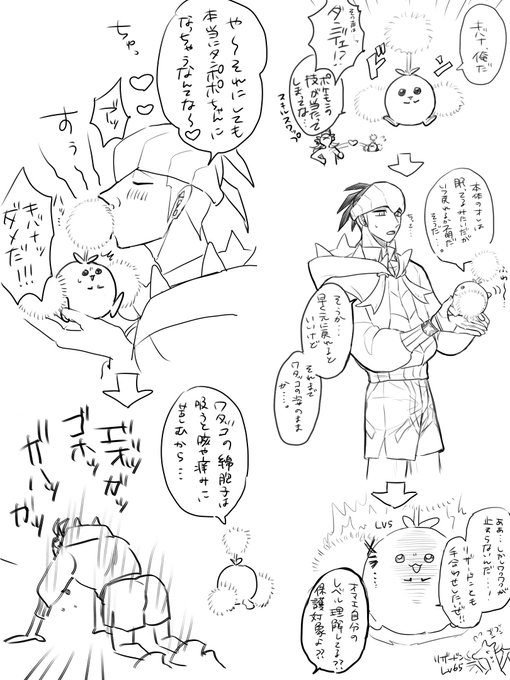 キバナ、俺だ
その声は
ダンデェ!?
ポケモンの
技が当たって
しまってな…
スキルスワップ
本体のオレは
眠ってるみたいだが
いつ戻れるか不明だ
そうだ。
そうか…
早く元に戻れると
いいけど
それまで
ワタッコの姿のまま
か…。
ああ…しかしワクワクが
止まらないんだ…!
リザードンとも
手合わせしたいぜ!!
LV5
オマエ自分の
レベル理解してる??
保護対象よ??
リザードン
LV65
や〜それにしても
本当にタンポポちゃんに
なっちゃうなんてな〜♡
ちゃっ
すぅ
キバナッ
ダメだ!!!
ワタッコの綿胞子は
吸うと咳や痛みに
苦しむから…
エホッ
ガッ
ゴホッ
ガーッ